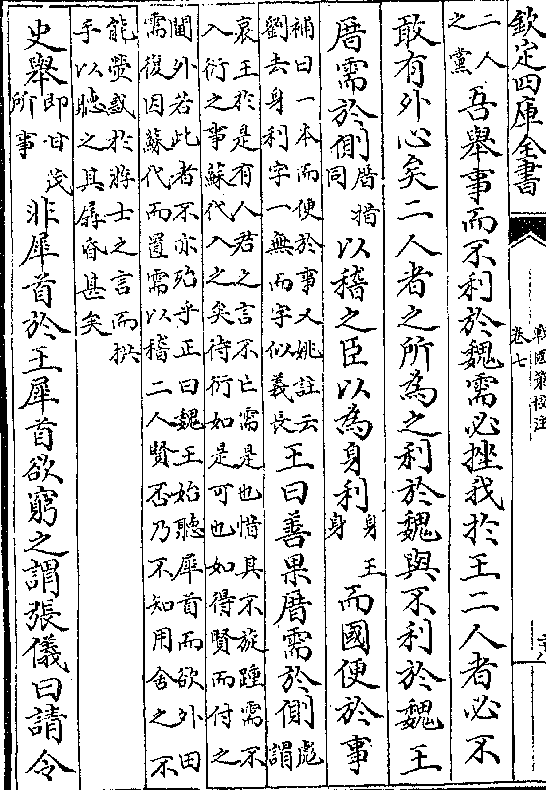 欽定四庫全書
戰國策校注
卷七
二人之黨吾舉事而不利於魏需必挫我於王二人者必不
敢有外心矣二人者之所為之利於魏與不利於魏王
厝需於側厝措同以稽之臣以為身利身王身而國便於事
補曰一本而便於事又姚註云劉去身利字一無而字似義長王曰善果厝需於側彪謂
哀王於是有人君之言不亡需是也惜其不旋踵需不
入衍之事蘇代入之矣待衍如是可也如得賢而付之
閫外若此者不亦殆乎正曰魏王始聽犀首而欲外田
需復因蘇代而置需以稽二人賢否乃不知用舍之不
能熒惑於將士之言而拱
手以聽之其孱昏甚矣
史舉即甘茂所事非犀首於王犀首欲窮之謂張儀曰請令